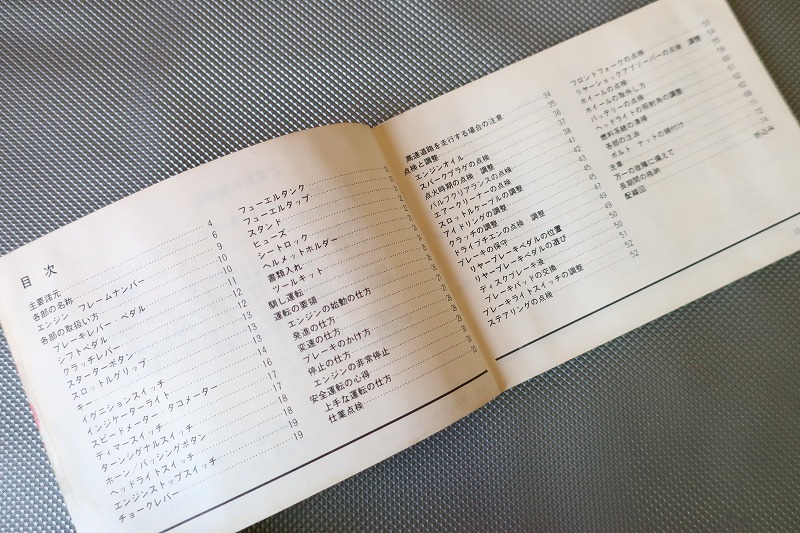 目次
主要諸元
各部の名称
エンジン フレームナンバー
各部の取扱い方
ブレーキレバー ペダル
シフトペダル
クラッチレバー
スターターボタン
スロットルグリップ
キー
イグニションスイッチ
インジケーターライト
スピードメーター タコメーター
ディマースイッチ
ターンシグナルスイッチ
ホーン/パッシングボタン
ヘッドライトスイッチ
エンジンストップスイッチ
チョークレバー
4
6
9
10
10
11
12
12
13
13
14
16
17
17
18
18
19
19
フューエルタンク
フューエルタップ
スタンド
ヒューズ
シートロック
ヘルメットホルダー
書類入れ
ツールキット
馴し運転
運転の要領
エンジンの始動の仕方
発進の仕方
変速の仕方
ブレーキのかけ方
停止の仕方
エンジンの非常停止
安全運転の心得
上手な運転の仕方
仕業点検
高速道路を走行する場合の注意 34
点検と調整 35
エンジンオイル 36
スパークプラグの点検 37
点火時期の点検 調整 38
バルブクリアランスの点検 41
エアークリーナーの点検 42
スロットルケーブルの調整 43
アイドリングの調整 45
クラッチの調整
ドライブチエンの点検 調整 47
ブレーキの保守 49
リヤーブレーキペダルの位置 50
リヤーブレーキペダルの遊び 50
ディスクブレーキ液 51
ブレーキパッドの交換
ブレーキライトスイッチの調整 52
ステアリングの点検 52
フロントフォークの点検 53
リヤーショックアブソーバーの点検 調整 54
ホイールの点検
ホイールの取外し方
バッテリーの点検
ヘッドライトの照射角の調整
燃料系統の清掃
各部の注油
ボルト ナットの締付け
洗車
万一の故障に備えて
長期間の格納
配線図